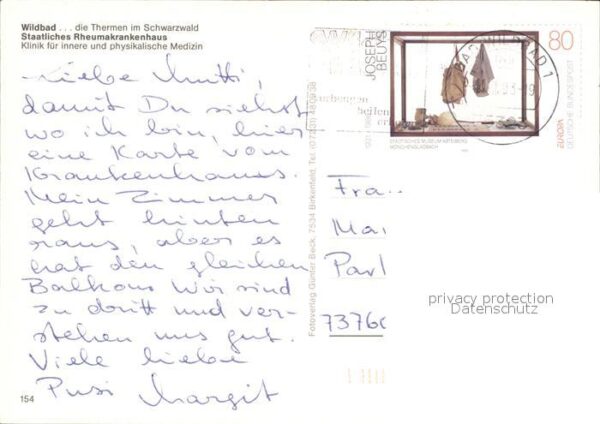 Wildbad . . . die Thermen im Schwarzwald
Staatliches Rheumakrankenhaus
Klinik für innere und physikalische Medizin
Liebe Mutti,
damit Du siehst
wo ich bin, hier
eine Karte vom
Krankenhaus.
Mein Zimmer
geht hinten
raus, aber es
hat den gleichen
Balkon. Wir sind
zu dritt und ver-
stehen uns gut.
Viele liebe
Pusi Margit
154
Fotoverlag Günter Beck, 7534 Birkenfeld, Tel. (07231) 480938
JOSEPH
BEUYS
1921-1986
80
STÄDTISCHES MUSEUM ABTEIBERG
MÖNCHENGLADBACH
EUROPA
DEUTSCHE BUNDESPOST
WILDBAD 1
helfen
Fra..
Mai
Parl
7376
privacy protection
Datenschutz